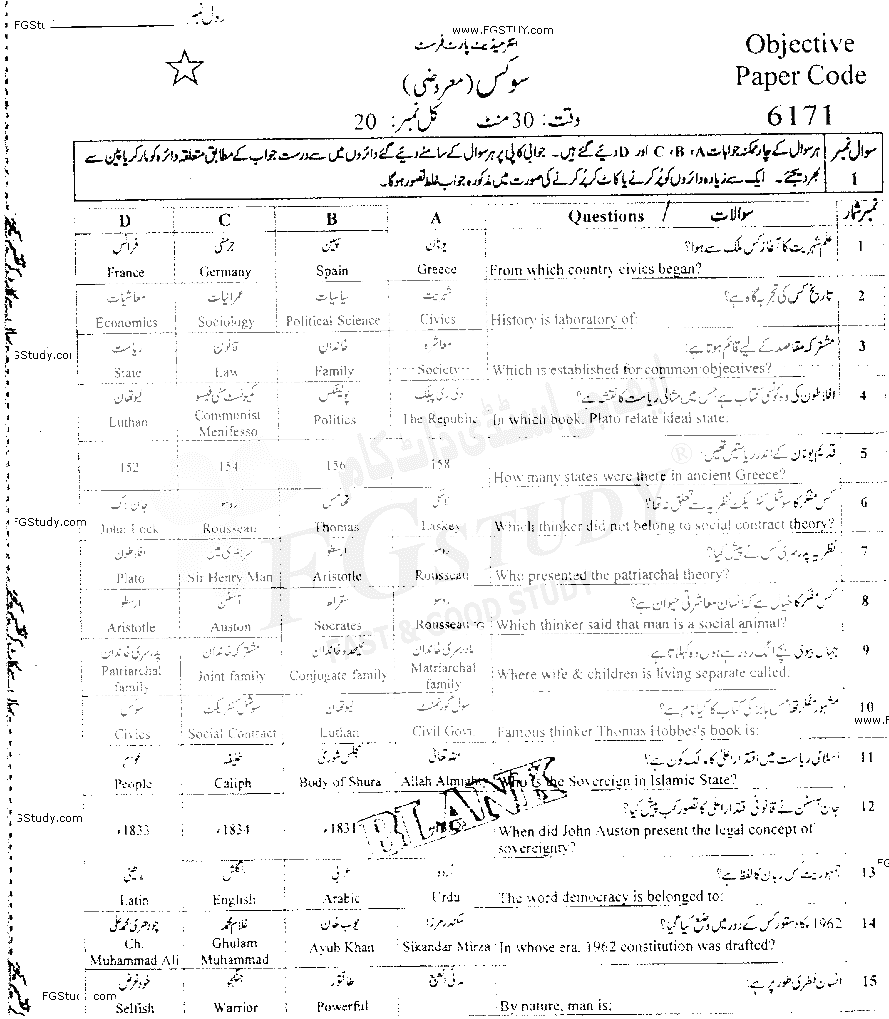 رول نمبر
www.FGSTUY.com
FGStu
انٹرمیڈیٹ پارٹ فرسٹ
Objective
Paper Code
6171
سوکس (معروضی)
وقت: 30 منٹ کل نمبر: 20
سوال نمبر 1
ہر سوال کے چار ممکنہ جوابات A، B، C اور D دیئے گئے ہیں۔ جوابی کاپی پر ہر سوال کے سامنے دیئے گئے دائروں میں سے درست جواب کے مطابق متعلقہ دائرہ کو مارکر یا پین سے
بھر دیجئے۔ ایک سے زیادہ دائروں کو پُر کرنے یا کاٹ کر پُر کرنے کی صورت میں مذکورہ جواب غلط تصور ہوگا۔
D C B A Questions / سوالات نمبر شمار
فرانس جرمنی سپین یونان علم شہریت کا آغاز کس ملک سے ہوا؟ 1
France Germany Spain Greece From which country civics began?
معاشیات عمرانیات سیاسیات شہریت تاریخ کس کی تجربہ گاہ ہے؟ 2
Economics Sociology Political Science Civics History is laboratory of:
ریاست قانون خاندان معاشرہ مشترکہ مقاصد کے لیے قائم ہوتا ہے: 3
State Law Family Society Which is established for common objectives?
افلاطون کی وہ کونسی کتاب ہے جس میں مثالی ریاست کا نقشہ ہے؟ 4
Luthan Communist Menifesso Politics The Republic In which book, Plato relate ideal state.
قدیم یونان کے اندر ریاستیں تھیں: 5
152 154 156 158 How many states were there in ancient Greece?
جان لاک روسو تھامس لاسکی کس مفکر کا سوشل کنٹریکٹ نظریہ سے تعلق نہ تھا؟ 6
John Lock Rousseau Thomas Laskey Which thinker did not belong to social contract theory?
افلاطون سر ہنری مین ارسطو روسو نظریہ پدرسری کس نے پیش کیا؟ 7
Plato Sir Henry Man Aristotle Rousseau Who presented the patriarchal theory?
ارسطو آسٹن سقراط روسو کس مفکر کا خیال ہے کہ انسان معاشرتی حیوان ہے؟ 8
Aristotle Auston Socrates Rousseau Which thinker said that man is a social animal?
پدرسری خاندان مشترکہ خاندان علیحدہ خاندان مادرسری خاندان جہاں بیوی بچے الگ رہ رہے ہوں وہ کہلاتا ہے 9
Patriarchal family Joint family Conjugate family Matriarchal family Where wife & children is living separate called.
سوکس سوشل کنٹریکٹ لیوتھان سول گورنمنٹ مشہور مفکر تھامس ہابز کی کتاب کا کیا نام ہے؟ 10
Civics Social Contract Luthan Civil Govt Famous thinker Thomas Hobbes's book is:
عوام خلیفہ مجلس شوریٰ اللہ تعالیٰ اسلامی ریاست میں اقتدار اعلیٰ کا مالک کون ہے؟ 11
People Caliph Body of Shura Allah Almighty Who is the Sovereign in Islamic State?
جان آسٹن نے قانونی اقتدار اعلیٰ کا تصور کب پیش کیا؟ 12
1833ء 1834ء 1831ء When did John Auston present the legal concept of sovereignty?
BLANK
لاطینی انگلش عربی اردو جمہوریت کس زبان کا لفظ ہے؟ 13
Latin English Arabic Urdu The word democracy is belonged to:
چودھری محمد علی غلام محمد ایوب خان سکندر مرزا 1962ء کا دستور کس کے دور میں وضع کیا گیا؟ 14
Ch. Muhammad Ali Ghulam Muhammad Ayub Khan Sikandar Mirza In whose era, 1962 constitution was drafted?
خود غرض جنگجو طاقتور مدنی الطبع انسان فطری طور پر ہے: 15
Selfish Warrior Powerful By nature, man is:
FGStudy.com
FGSTUDY
FAST & GOOD STUDY